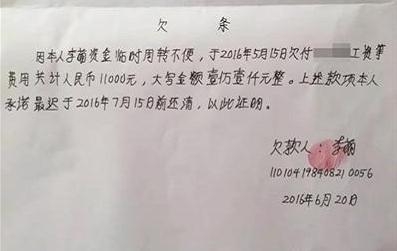 欠 条
因本人李萌资金临时周转不便，于2016年5月15日欠付 工资等
费用共计人民币11000元，大写金额壹万壹仟元整。上述款项本人
承诺最迟于2016年7月15日前还清，以此证明。
欠款人：李萌
11010419840821 0056
2016年6月20日